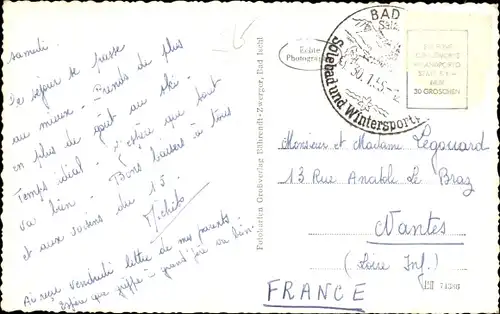 samedi.
Le séjour se passe
au mieux - Prends de plus
en plus de goût au ski -
Temps idéal - J'espère que tout
va bien - Bons baisers à tous
et aux voisins du 15.
Micheto
Ai reçu vendredi lettre de mes parents
espère que grippe à grand' père va bien.
Echte
Photographie
Fotokarten Großverlag Bährendt-Zwerger, Bad Ischl
BAD
Solebad und Wintersport
30 GROSCHEN
Monsieur et Madame Legouard
13 Rue Anatole Le Braz
Nantes
(Loire Inf.)
FRANCE